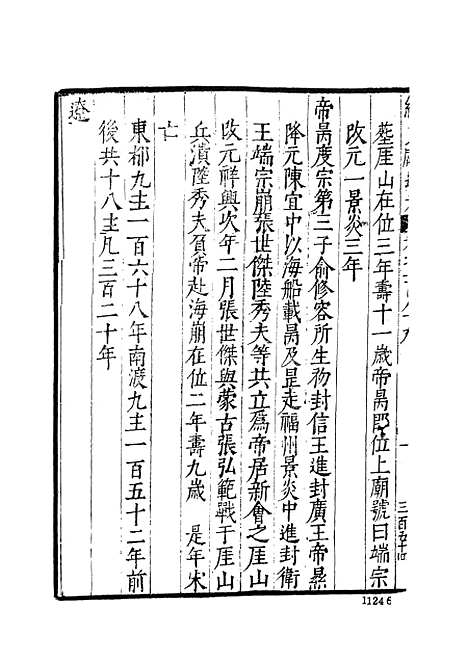 塟厓山在位三年壽十一歲帝昺卽位上廟號曰端宗
改元一景炎三年
帝昺度宗第三子俞修容所生初封信王進封廣王帝㬎
降元陳宜中以海船載昺及昰走福州景炎中進封衛
王端宗崩張世傑陸秀夫等共立爲帝居新會之厓山
改元祥興次年二月張世傑與蒙古張弘範戰于厓山
兵潰陸秀夫負帝赴海崩在位二年壽九歲 是年宋
亡
東都九主一百六十八年南渡九主一百五十二年前
後共十八主凡三百二十年
遼
三百五十
11246